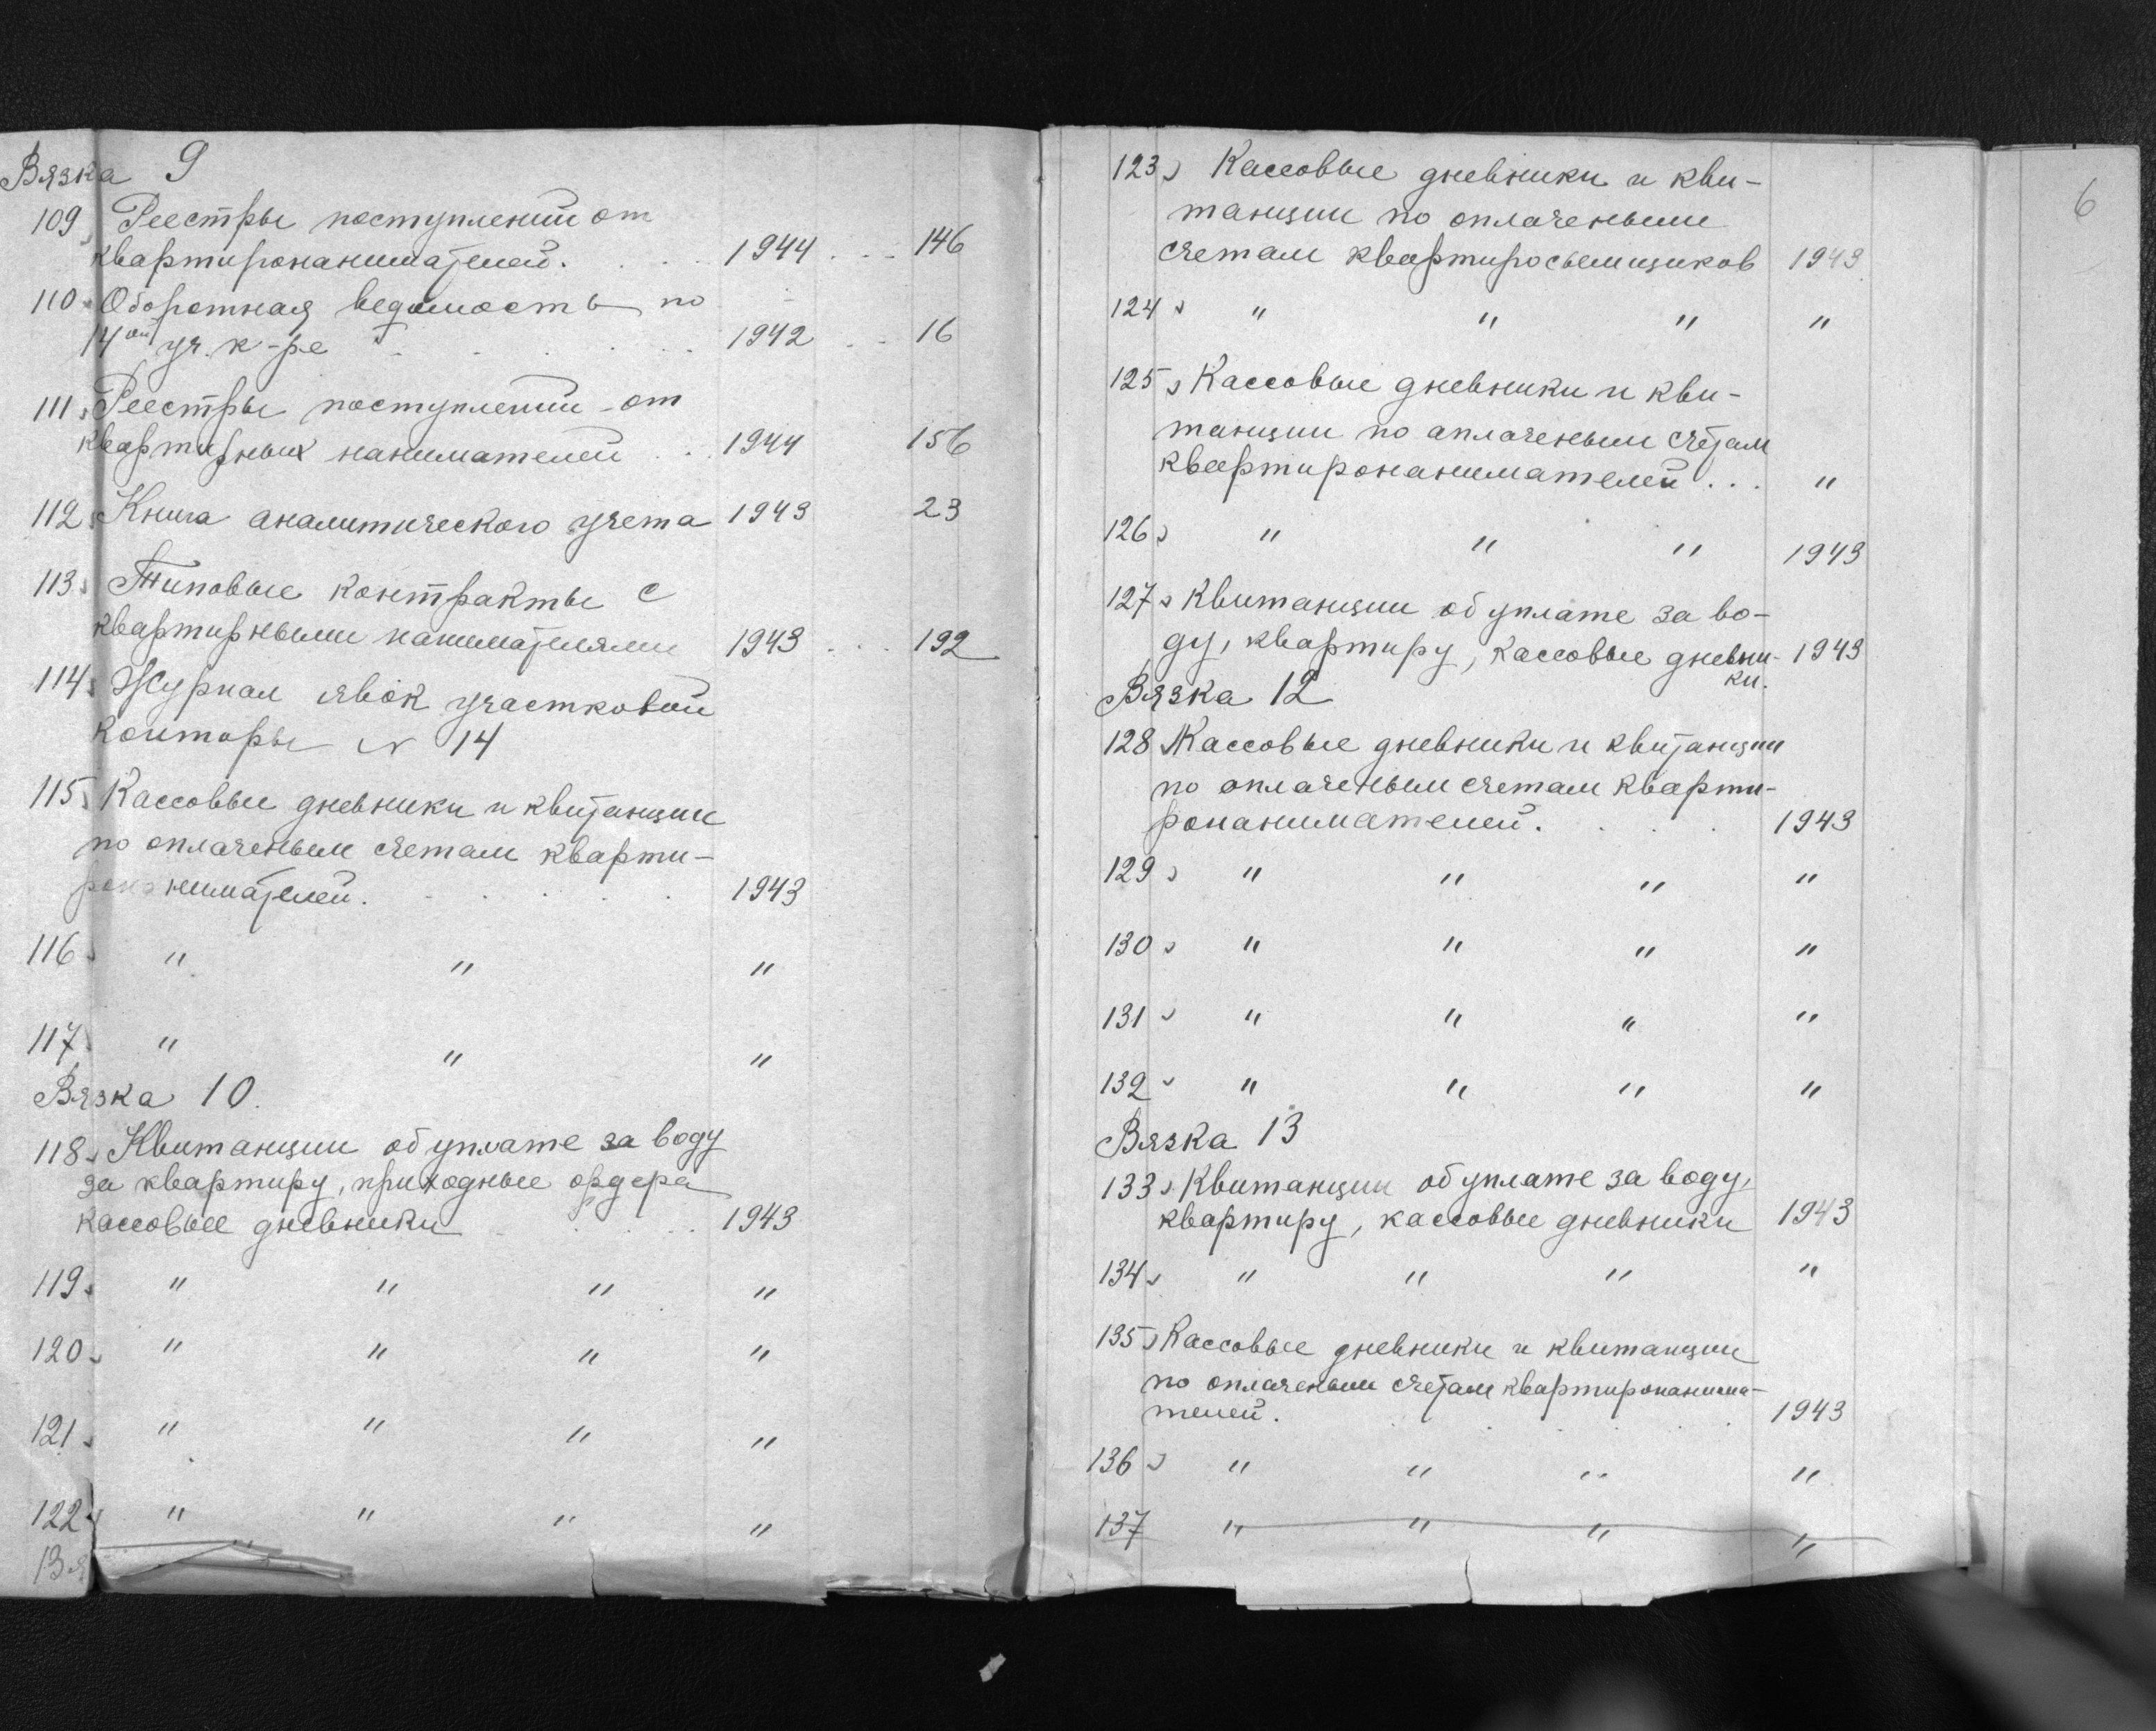 Вязка 9
109 Реестры поступлений от
квартиронанимателей. . . . 1944 . . . 146
110 Оборотная ведомость по
14ой уч. к-ре . . . . . . 1942 . . 16
111 Реестры поступлений от
квартирных нанимателей . . 1944 156
112 Книга аналитического учета 1943 23
113 Типовые контракты с
квартирными нанимателями 1943 . . . 192
114 Журнал явок участковой
конторы № 14
115 Кассовые дневники и квитанции
по оплаченым счетам кварти-
ронанимателей. . . . . . 1943
116 " " "
117 " " "
Вязка 10.
118 Квитанции об уплате за воду
за квартиру, приходные ордера
кассовые дневники . . . . 1943
119 " " " "
120 " " " "
121 " " " "
122 " " " "
Вя
123 Кассовые дневники и кви-
танции по оплаченым
счетам квартиросъемщиков 1943
124 " " " "
125 Кассовые дневники и кви-
танции по аплаченым счетам
квартиронанимателей . . . "
126 " " " 1943
127 Квитанции об уплате за во-
ду, квартиру, кассовые дневни- 1943
ки.
Вязка 12
128 Кассовые дневники и квитанции
по оплаченым счетам кварти-
ронанимателей. . . . 1943
129 " " " "
130 " " " "
131 " " " "
132 " " " "
Вязка 13
133 Квитанции об уплате за воду,
квартиру, кассовые дневники 1943
134 " " " "
135 Кассовые дневники и квитанции
по оплаченым счетам квартиронанима-
телей. . . . . . 1943
136 " " " "
137 " " " "
6